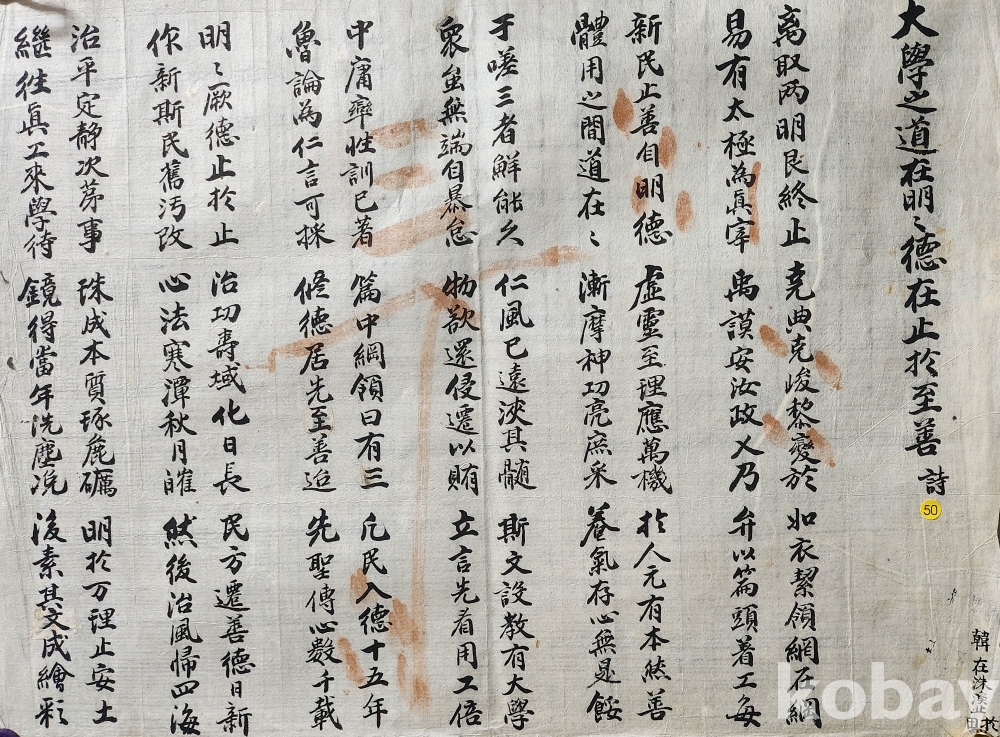 大學之道在明〻德在止於至善 詩
50
离取两明艮終止 克典克峻黎變於 如衣絜領網在綱
易有太極為眞宰 禹謨安汝政乂乃 弁以篇頭着工每
新民止善自明德 虛靈至理應萬機 於人元有本然善
體用之間道在〻 漸摩神功亮庶采 養氣存心無是餒
于嗟三者鮮能久 仁風已遠浹其髄 斯文設教有大學
衆生無端自暴怠 物欲還侵遷以賄 立言先看用工倍
中庸率性訓已著 篇中綱領曰有三 凡民入德十五年
魯論為仁言可採 修德居先至善迨 先聖傳心數千載
明〻厥德止於止 治功壽域化日長 民方遷善德日新
作新斯民舊汚改 心法寒潭秋月皠 然後治風㷌四海
治平定静次苐事 珠成本質琢麁礪 明於万理止安土
継徃眞工來學待 鏡得當年洗塵浼 後素其文成繪彩
韓在洙
kobay